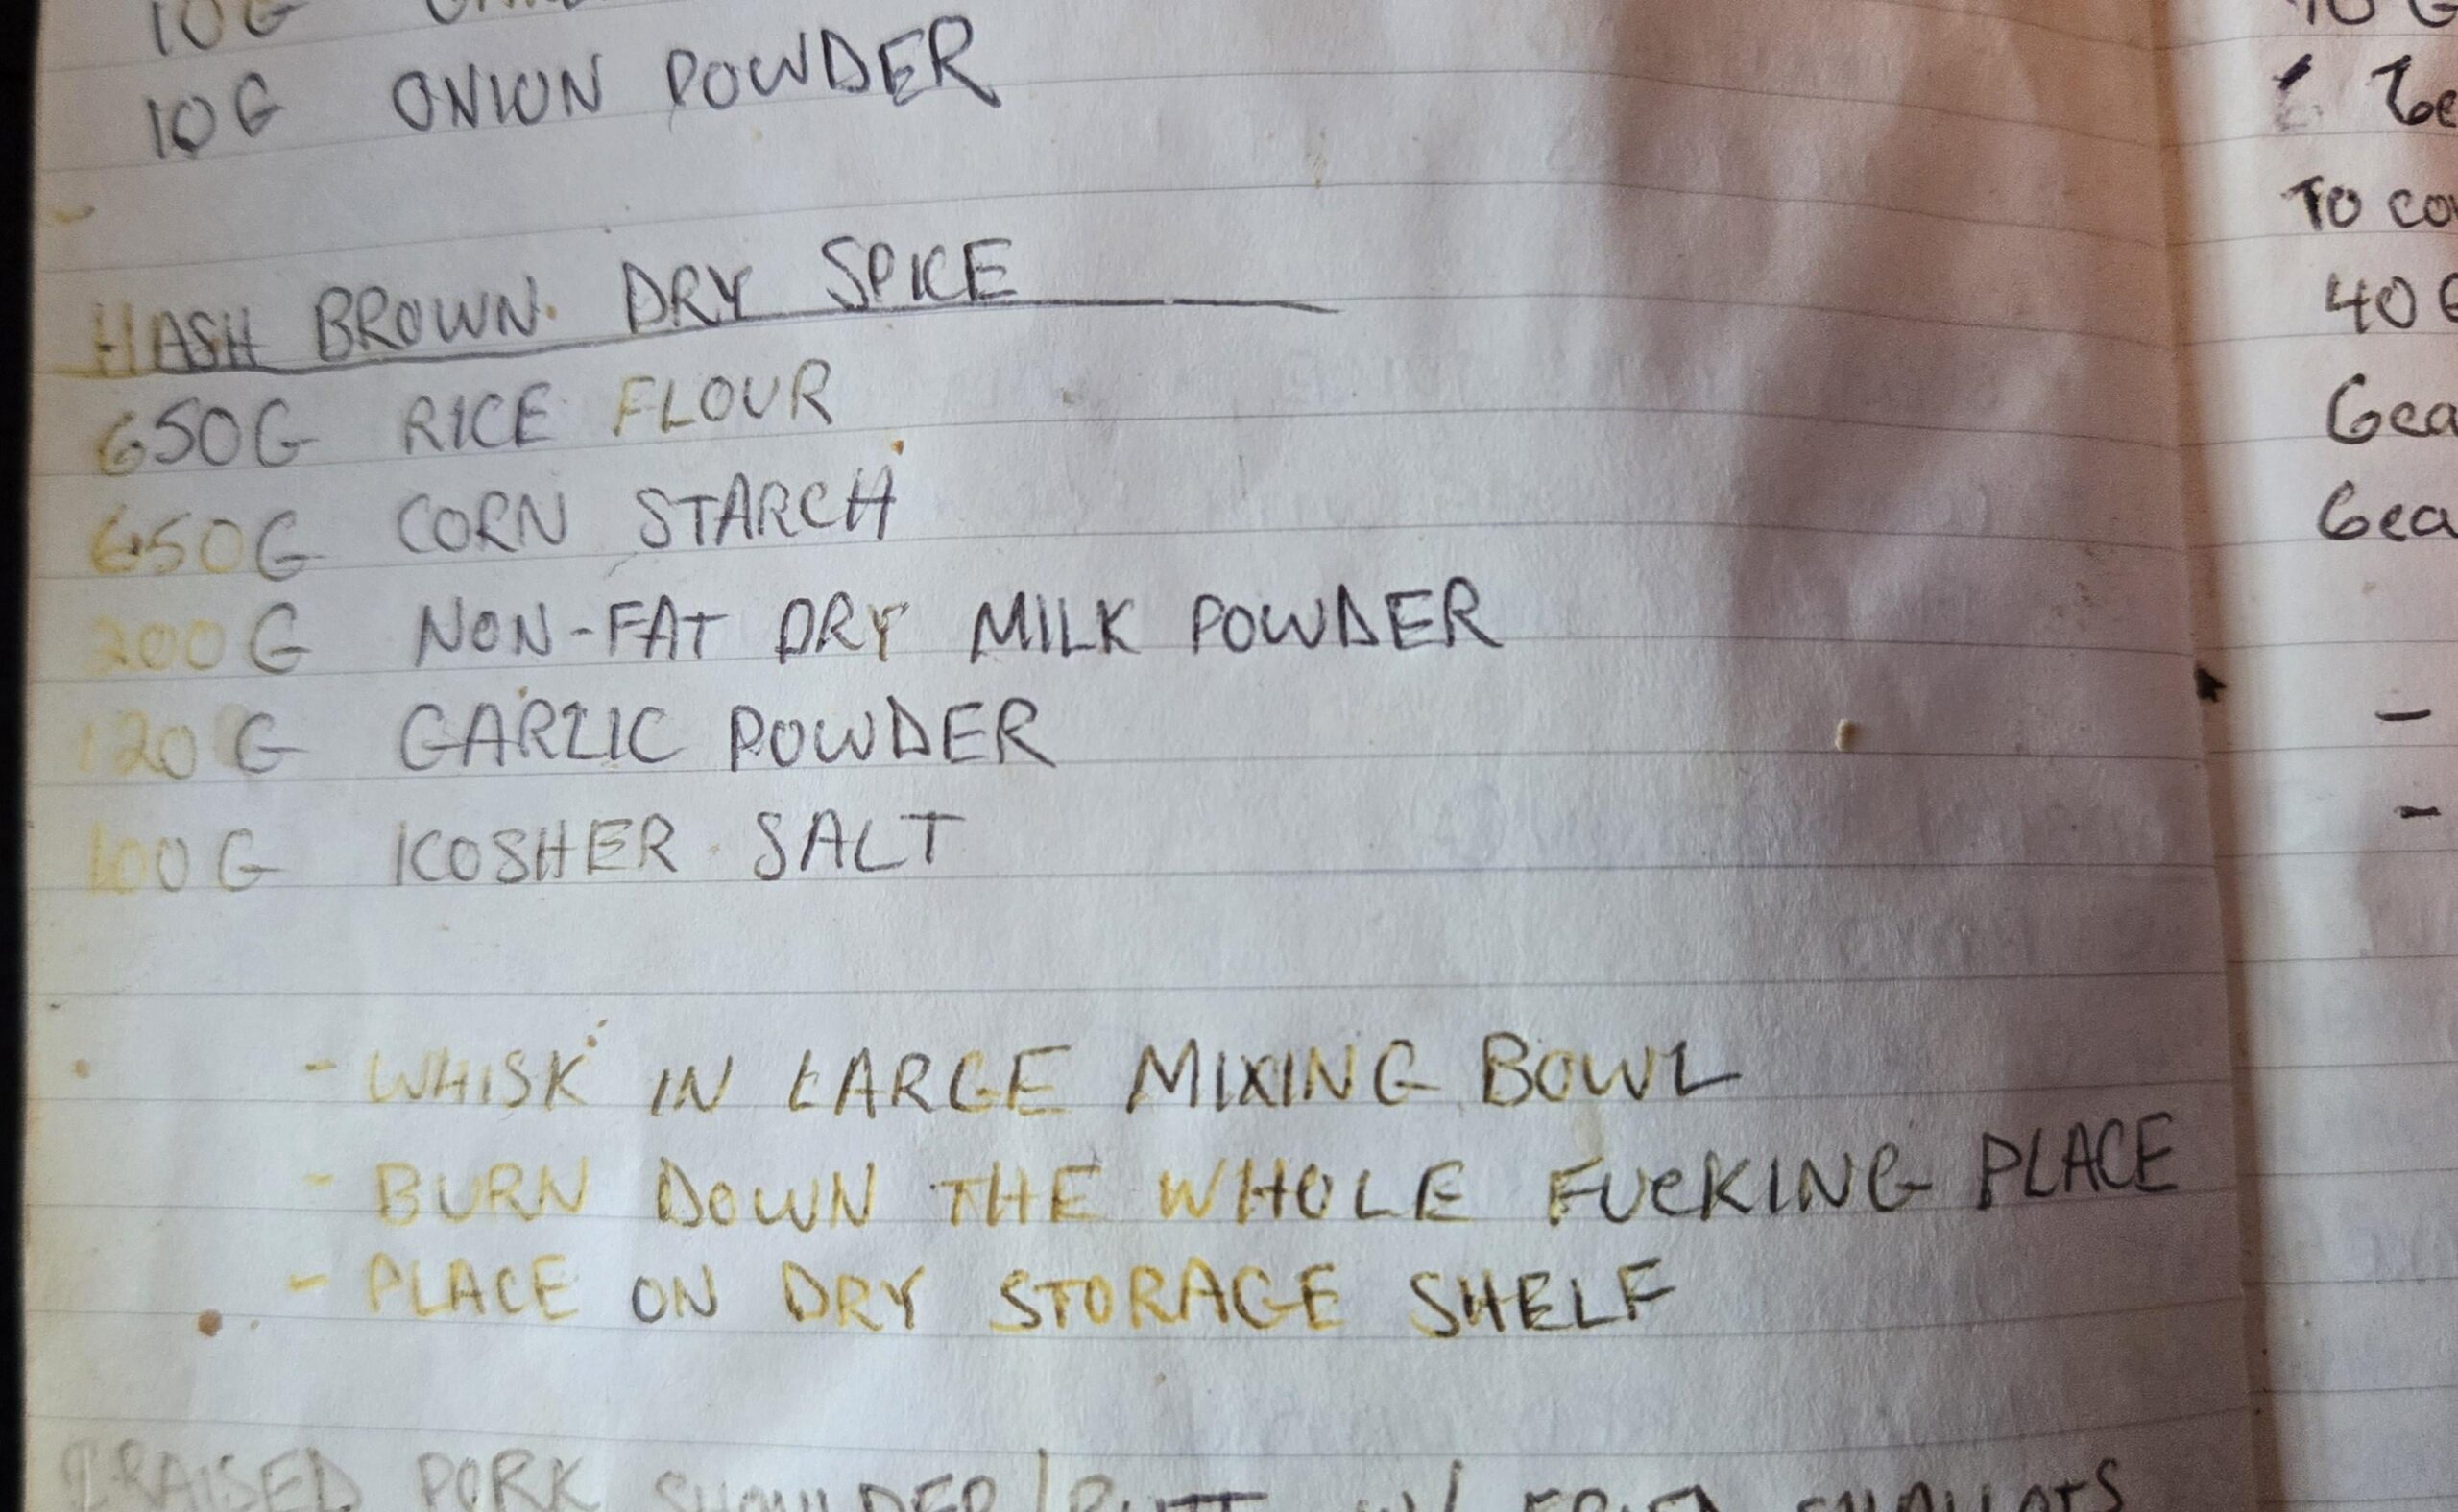 10G
10G ONION POWDER
HASH BROWN DRY SPICE
650G RICE FLOUR
650G CORN STARCH
200G NON-FAT DRY MILK POWDER
120G GARLIC POWDER
100G KOSHER SALT
- WHISK IN LARGE MIXING BOWL
- BURN DOWN THE WHOLE FUCKING PLACE
- PLACE ON DRY STORAGE SHELF
BRAISED PORK SHOULDER/BUTT W/ FRIED SHALLOTS
10 G
TO
40 G
6ea
6ea
-
-